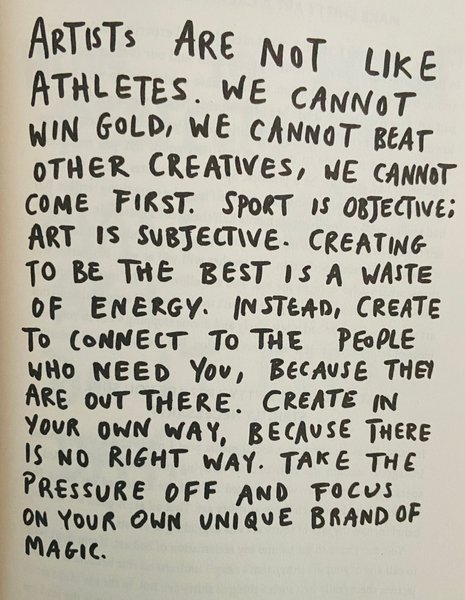 ARTISTS ARE NOT LIKE
ATHLETES. WE CANNOT
WIN GOLD, WE CANNOT BEAT
OTHER CREATIVES, WE CANNOT
COME FIRST. SPORT IS OBJECTIVE;
ART IS SUBJECTIVE. CREATING
TO BE THE BEST IS A WASTE
OF ENERGY. INSTEAD, CREATE
TO CONNECT TO THE PEOPLE
WHO NEED YOU, BECAUSE THEY
ARE OUT THERE. CREATE IN
YOUR OWN WAY, BECAUSE THERE
IS NO RIGHT WAY. TAKE THE
PRESSURE OFF AND FOCUS
ON YOUR OWN UNIQUE BRAND OF
MAGIC.